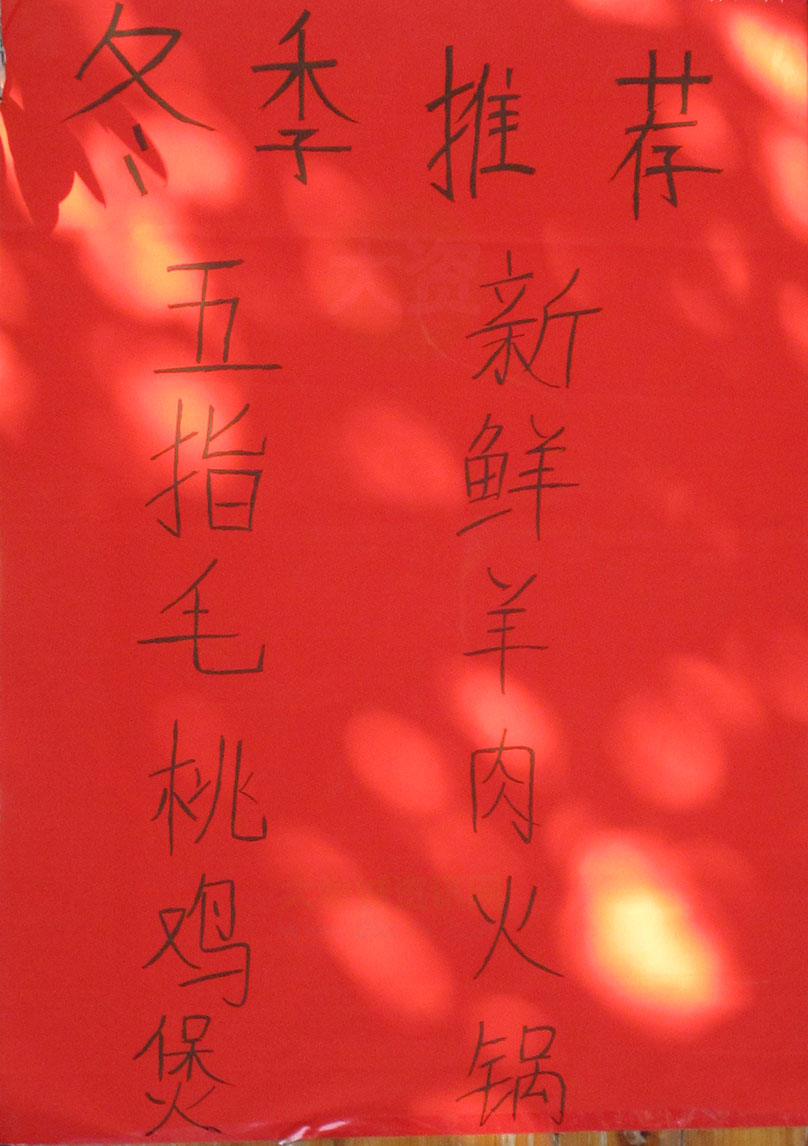 冬季推荐
新鲜羊肉火锅
五指毛桃鸡煲